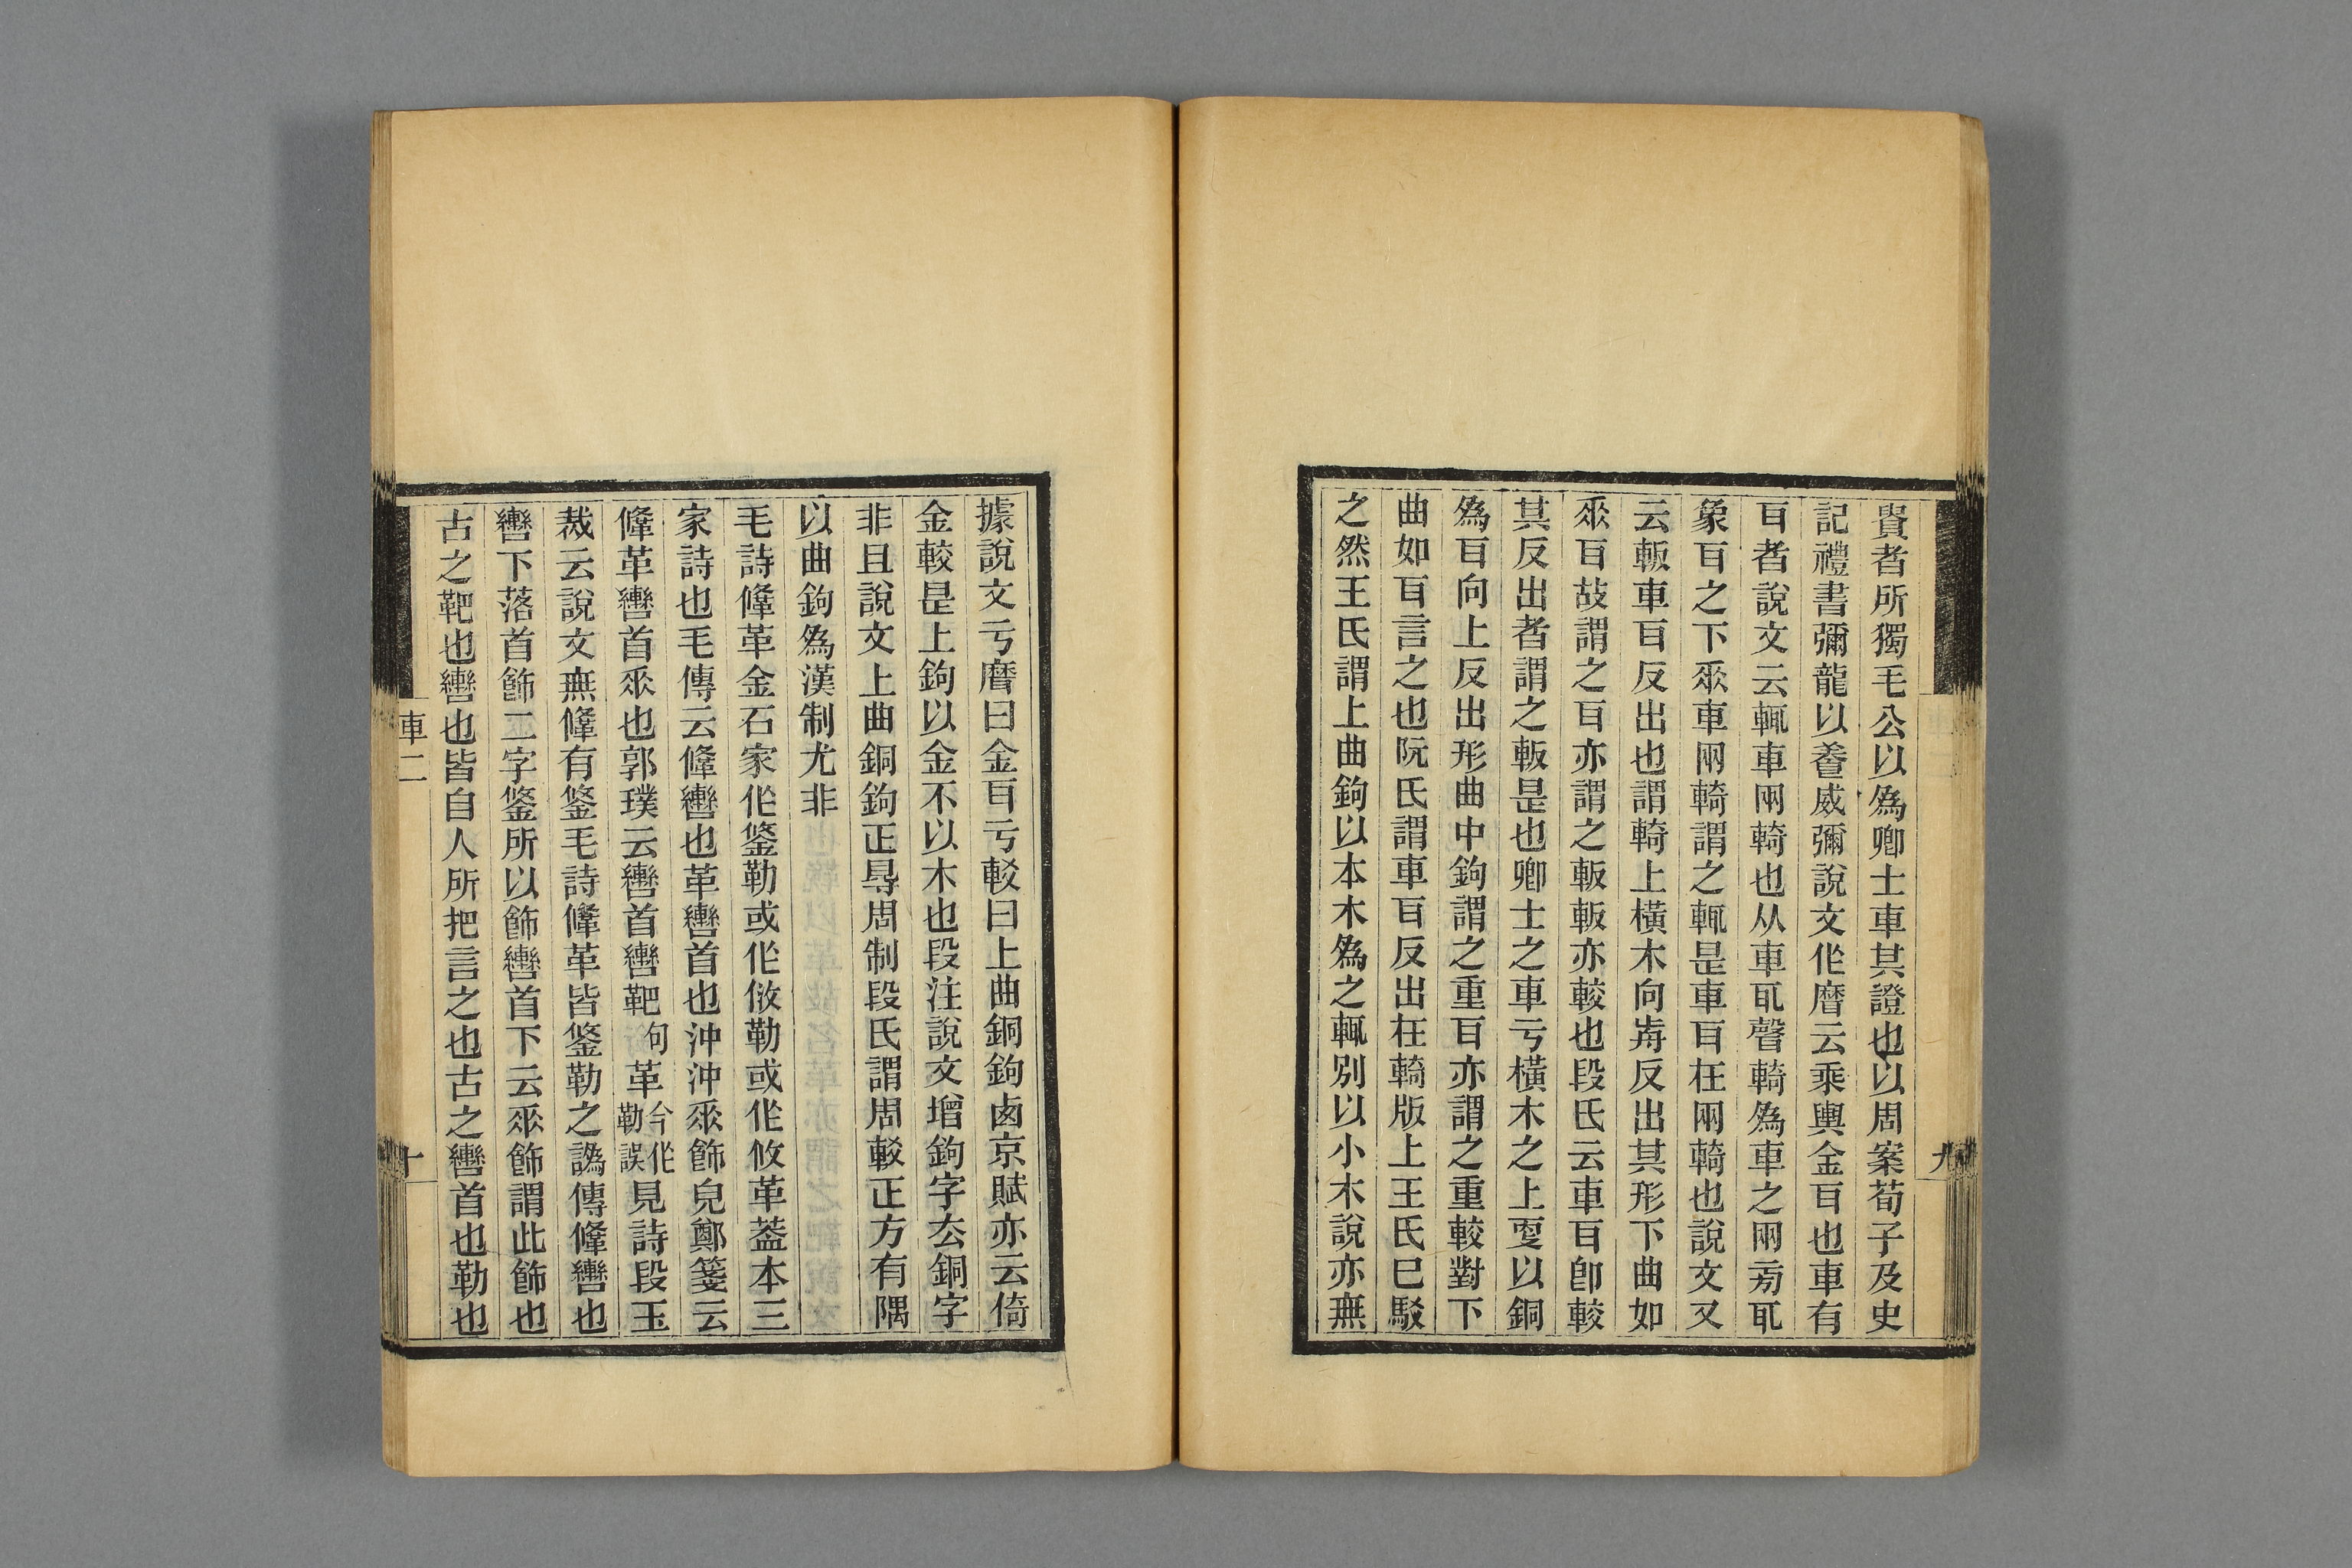 貴者所獨毛公以爲卿士車其證也以周案荀子及史
記禮書彌龍以養威彌說文作䃺云乘輿金耳也車有
耳者說文云輒車兩輢也从車耴聲輢爲車之兩㫄耴
象耳之下𠂹車兩輢謂之輒是車耳在兩輢也說文又
云䡊車耳反出也謂輢上橫木向歬反出其形下曲如
𠂹耳故謂之耳亦謂之䡊䡊亦較也段氏云車耳卽較
其反出者謂之䡊是也卿士之車亏橫木之上㪅以銅
爲耳向上反出形曲中鉤謂之重耳亦謂之重較對下
曲如耳言之也阮氏謂車耳反出在輢版上王氏已駁
之然王氏謂上曲鉤以本木爲之輒別以小木說亦無
九
據說文亏䃺曰金耳亏較曰上曲銅鉤鹵京賦亦云倚
金較是上鉤以金不以木也段注說文增鉤字去銅字
非且說文上曲銅鉤正㝵周制段氏謂周較正方有隅
以曲鉤爲漢制尤非
毛詩鞗革金石家作鋚勒或作㑜勒或作攸革葢本三
家詩也毛傳云鞗轡也革轡首也沖沖𠂹飾皃鄭箋云
鞗革轡首𠂹也郭璞云轡首轡靶句革今作勒誤見詩段玉
裁云說文無鞗有鋚毛詩鞗革皆鋚勒之譌傳鞗轡也
轡下落首飾二字鋚所以飾轡首下云𠂹飾謂此飾也
古之靶也轡也皆自人所把言之也古之轡首也勒也
車二
十